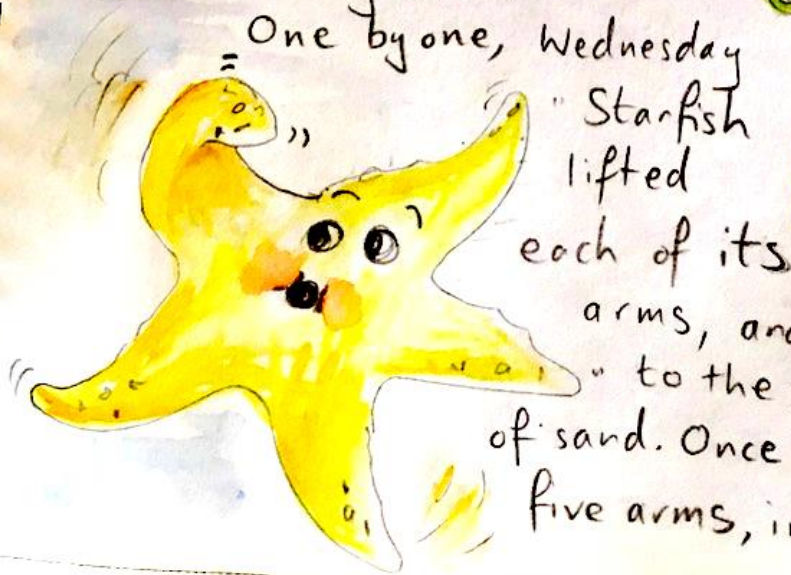 One by one, Wednesday
Starfish
lifted
each of its
arms, and
to the
of sand. Once
five arms,